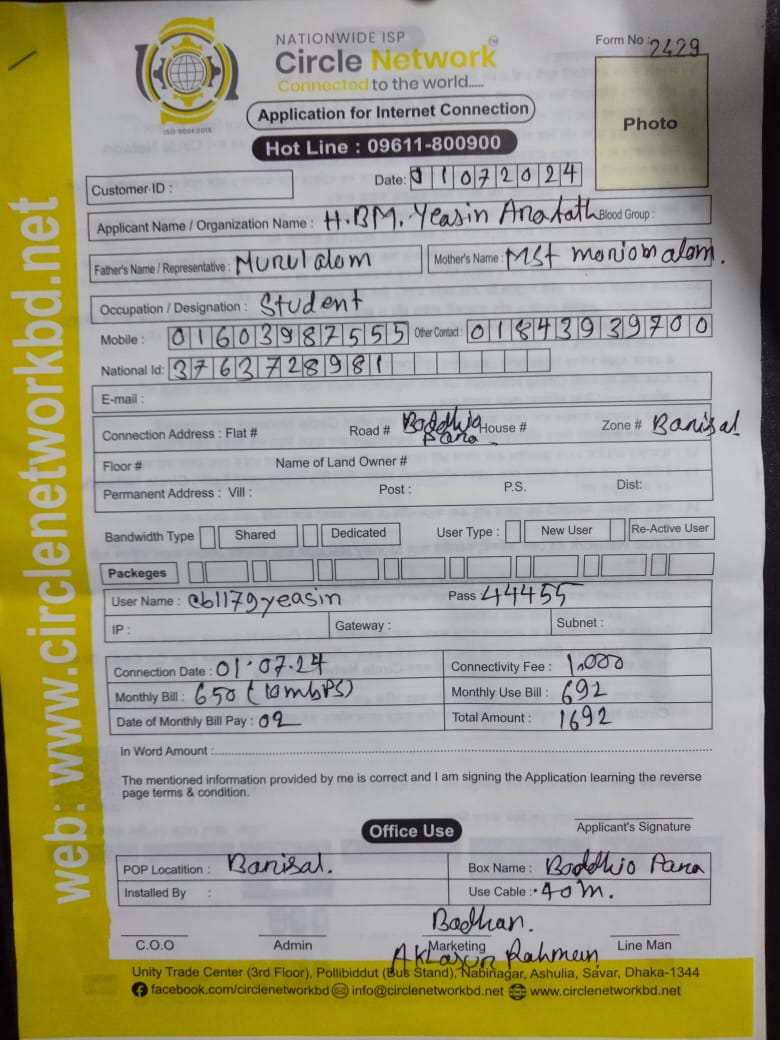 NATIONWIDE ISP
Circle Network™
Connected to the world.....
ISO 9001:2015
Form No : 2429
Application for Internet Connection
Hot Line : 09611-800900
Photo
Customer ID :
Date: 01072024
Applicant Name / Organization Name : H.BM. Yeasin Arafath Blood Group :
Father's Name / Representative : Nurul alom Mother's Name : MSt moriom alom.
Occupation / Designation : Student
Mobile : 01603987555 Other Contact : 01843939700
National Id: 3763728981
E-mail :
Connection Address : Flat # Road # Boddhio Para House # Zone # Barisal
Floor # Name of Land Owner #
Permanent Address : Vill : Post : P.S. Dist:
Bandwidth Type Shared Dedicated User Type : New User Re-Active User
Packeges
User Name : cb1179yeasin Pass 44455
IP : Gateway : Subnet :
Connection Date : 01.07.24 Connectivity Fee : 1,000
Monthly Bill : 650 (10mbPS) Monthly Use Bill : 692
Date of Monthly Bill Pay : 02 Total Amount : 1692
In Word Amount :
The mentioned information provided by me is correct and I am signing the Application learning the reverse
page terms & condition.
Office Use
Applicant's Signature
POP Locatition : Barisal. Box Name : Boddhio Para
Installed By : Use Cable : 40m.
Badhan.
C.O.O Admin Marketing Line Man
Rahman
Unity Trade Center (3rd Floor), Pollibiddut (Bus Stand), Nabinagar, Ashulia, Savar, Dhaka-1344
facebook.com/circlenetworkbd info@circlenetworkbd.net www.circlenetworkbd.net
web: www.circlenetworkbd.net